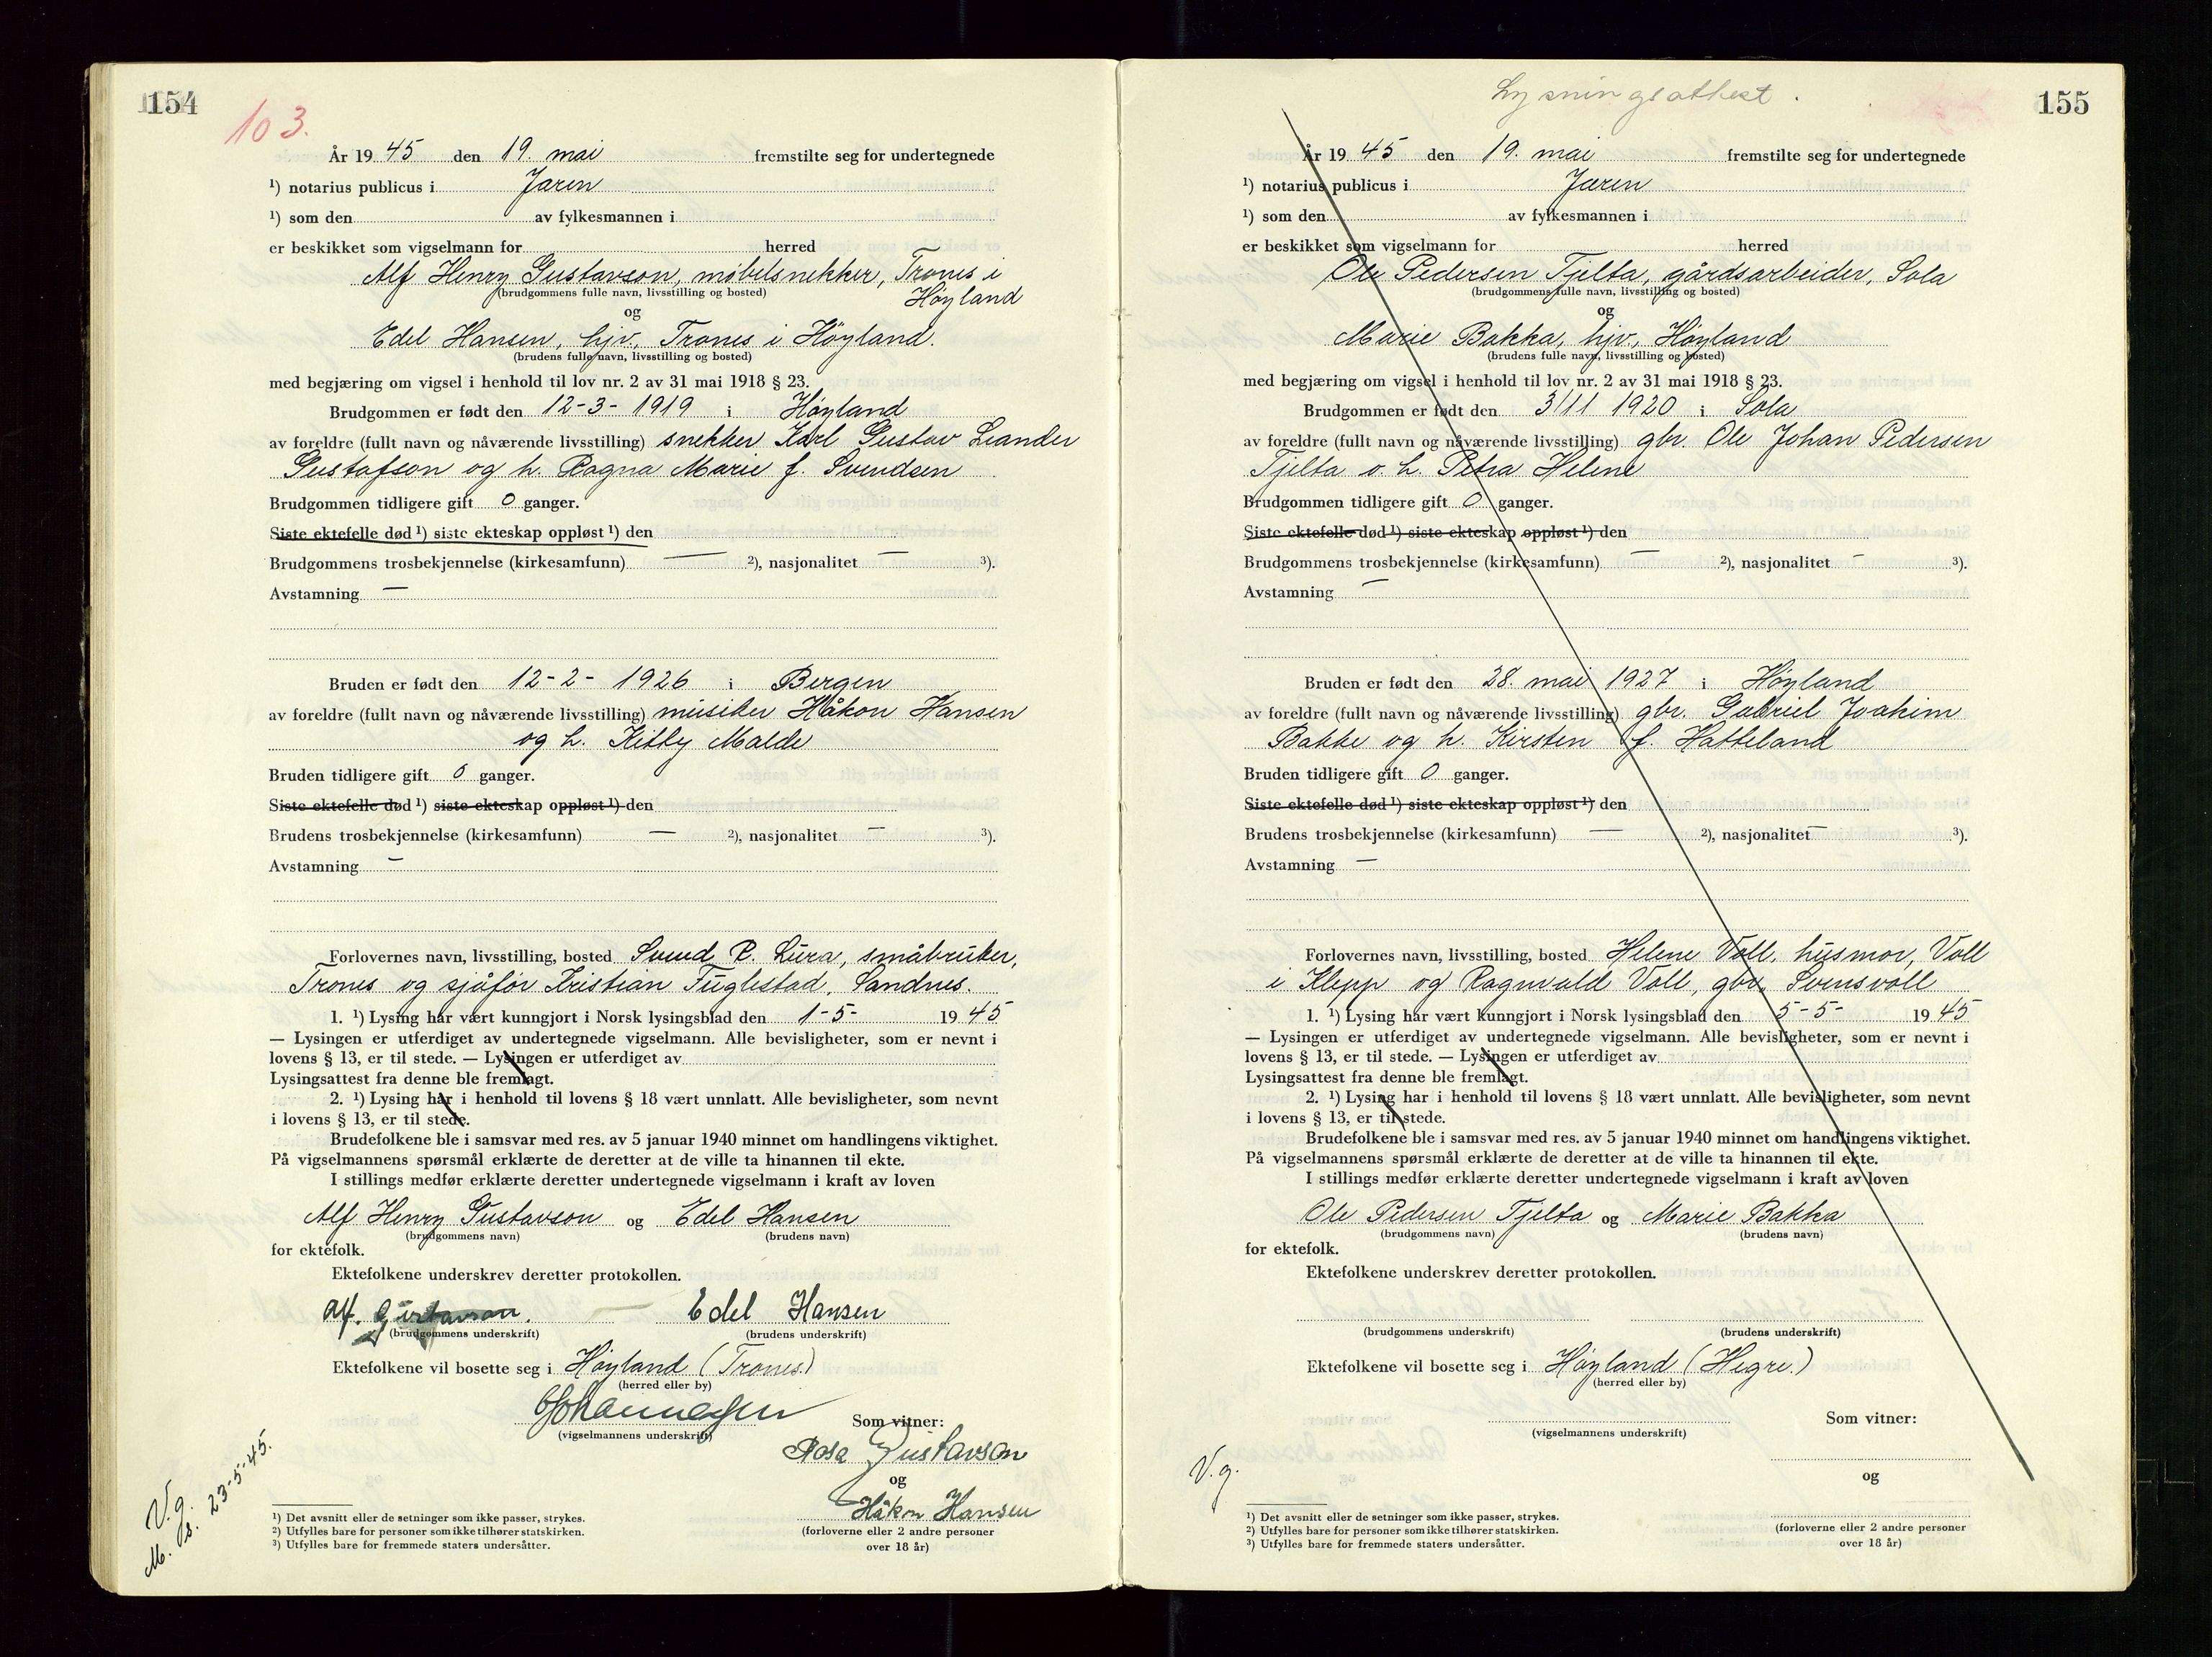 154
103.
År 19 45 den 19. mai fremstilte seg for undertegnede
¹) notarius publicus i Jæren
¹) som den av fylkesmannen i
er beskikket som vigselmann for herred
Alf Henry Gustavson, møbelsnekker, Trones i
(brudgommens fulle navn, livsstilling og bosted) Høyland
og
Edel Hansen, hjv., Trones i Höyland.
(brudens fulle navn, livsstilling og bosted)
med begjæring om vigsel i henhold til lov nr. 2 av 31 mai 1918 § 23.
Brudgommen er født den 12-3-1919 i Høyland
av foreldre (fullt navn og nåværende livsstilling) snekker Karl Gustav Leander
Gustafson og h. Ragna Marie f. Svendsen
Brudgommen tidligere gift 0 ganger.
Siste ektefelle død ¹) siste ekteskap oppløst ¹) den
Brudgommens trosbekjennelse (kirkesamfunn) — ²), nasjonalitet — ³).
Avstamning —
Bruden er født den 12-2-1926 i Bergen
av foreldre (fullt navn og nåværende livsstilling) musiker Håkon Hansen
og h. Kitty Malde
Bruden tidligere gift 0 ganger.
Siste ektefelle død ¹) siste ekteskap oppløst ¹) den
Brudens trosbekjennelse (kirkesamfunn) — ²), nasjonalitet — ³).
Avstamning —
Forlovernes navn, livsstilling, bosted Svend R. Lura, småbruker,
Trones og sjåfør Kristian Fuglestad, Sandnes.
1. ¹) Lysing har vært kunngjort i Norsk lysingsblad den 1-5- 19 45
— Lysingen er utferdiget av undertegnede vigselmann. Alle bevisligheter, som er nevnt i
lovens § 13, er til stede. — Lysingen er utferdiget av
Lysingsattest fra denne ble fremlagt.
2. ¹) Lysing har i henhold til lovens § 18 vært unnlatt. Alle bevisligheter, som nevnt
i lovens § 13, er til stede.
Brudefolkene ble i samsvar med res. av 5 januar 1940 minnet om handlingens viktighet.
På vigselmannens spørsmål erklærte de deretter at de ville ta hinannen til ekte.
I stillings medfør erklærte deretter undertegnede vigselmann i kraft av loven
Alf Henry Gustavson og Edel Hansen
(brudgommens navn) (brudens navn)
for ektefolk.
Ektefolkene underskrev deretter protokollen.
Alf. Gustavson. Edel Hansen
(brudgommens underskrift) (brudens underskrift)
Ektefolkene vil bosette seg i Høyland (Trones.)
(herred eller by)
Som vitner:
(vigselmannens underskrift)
Rosa Gustavson
og
Håkon Hansen
(forloverne eller 2 andre personer
over 18 år)
V.g.
M. s. 23-5-45.
¹) Det avsnitt eller de setninger som ikke passer, strykes.
²) Utfylles bare for personer som ikke tilhører statskirken.
³) Utfylles bare for fremmede staters undersåtter.
Lysningsattest.
155
År 19 45 den 19. mai fremstilte seg for undertegnede
¹) notarius publicus i Jæren
¹) som den av fylkesmannen i
er beskikket som vigselmann for herred
Ole Pedersen Tjelta, gårdsarbeider, Sola
(brudgommens fulle navn, livsstilling og bosted)
og
Marie Bakka, hjv., Høyland
(brudens fulle navn, livsstilling og bosted)
med begjæring om vigsel i henhold til lov nr. 2 av 31 mai 1918 § 23.
Brudgommen er født den 3/11 1920 i Sola
av foreldre (fullt navn og nåværende livsstilling) gbr. Ole Johan Pedersen
Tjelta o. h. Petra Helene
Brudgommen tidligere gift 0 ganger.
Siste ektefelle død ¹) siste ekteskap oppløst ¹) den
Brudgommens trosbekjennelse (kirkesamfunn) — ²), nasjonalitet — ³).
Avstamning —
Bruden er født den 28. mai 1927 i Høyland
av foreldre (fullt navn og nåværende livsstilling) gbr. Gabriel Joakim
Bakke og h. Kirsten f. Hatteland
Bruden tidligere gift 0 ganger.
Siste ektefelle død ¹) siste ekteskap oppløst ¹) den
Brudens trosbekjennelse (kirkesamfunn) — ²), nasjonalitet — ³).
Avstamning —
Forlovernes navn, livsstilling, bosted Helene Voll, husmor, Voll
i Klepp og Ragnvald Voll, gbr. Svensvoll
1. ¹) Lysing har vært kunngjort i Norsk lysingsblad den 5-5- 19 45
— Lysingen er utferdiget av undertegnede vigselmann. Alle bevisligheter, som er nevnt i
lovens § 13, er til stede. — Lysingen er utferdiget av
Lysingsattest fra denne ble fremlagt.
2. ¹) Lysing har i henhold til lovens § 18 vært unnlatt. Alle bevisligheter, som nevnt
i lovens § 13, er til stede.
Brudefolkene ble i samsvar med res. av 5 januar 1940 minnet om handlingens viktighet.
På vigselmannens spørsmål erklærte de deretter at de ville ta hinannen til ekte.
I stillings medfør erklærte deretter undertegnede vigselmann i kraft av loven
Ole Pedersen Tjelta og Marie Bakka
(brudgommens navn) (brudens navn)
for ektefolk.
Ektefolkene underskrev deretter protokollen.
(brudgommens underskrift) (brudens underskrift)
Ektefolkene vil bosette seg i Høyland (Hegre.)
(herred eller by)
Som vitner:
(vigselmannens underskrift)
og
(forloverne eller 2 andre personer
over 18 år)
V.g.
¹) Det avsnitt eller de setninger som ikke passer, strykes.
²) Utfylles bare for personer som ikke tilhører statskirken.
³) Utfylles bare for fremmede staters undersåtter.